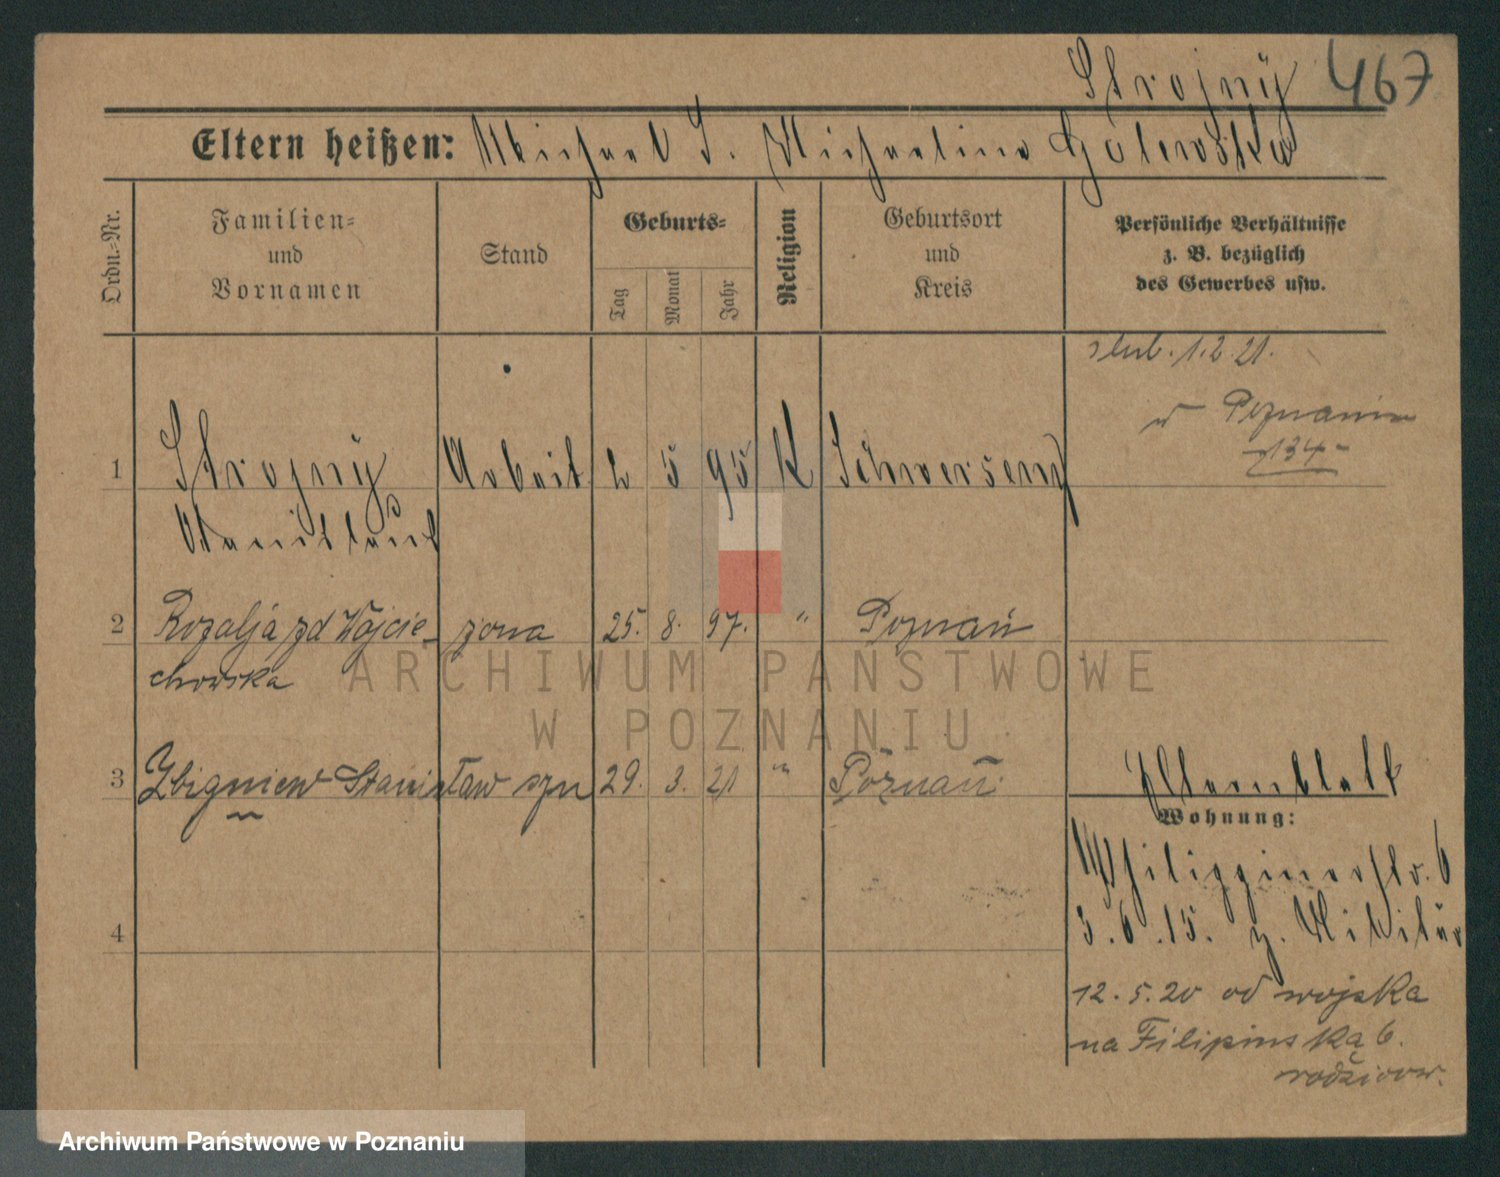 Strojny 467
Eltern heißen: Michael S. Michaelina Golewska
Ordn.-Nr.
Familien-
und
Vornamen
Stand
Geburts-
Tag
Monat
Jahr
Religion
Geburtsort
und
Kreis
Persönliche Verhältnisse
z. B. bezüglich
des Gewerbes usw.
ślub. 1.2.21.
w Poznaniu
134
1 Strojny Arbeit. 2 5 95 K Schwersenz
Stanislaus
2 Rozalja zd Wojcie- żona 25. 8. 97. " Poznań
chowska
3 Zbigniew Stanisław syn 29. 3. 21 " Poznań
Elternblatt
Wohnung:
Philippinerstr. 6
3.6.15. z. Militär
4
12.5.20 od wojska
na Filipinska 6.
rodziców.
ARCHIWUM PAŃSTWOWE
W POZNANIU
Archiwum Państwowe w Poznaniu